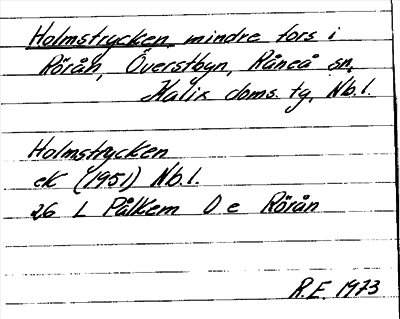 Holmstrycken mindre fors i
Rörån, Överstbyn, Råneå sn,
Kalix doms. tg, Nb. l.
Holmstrycken
ek (1951) Nb. l.
26 L Pålkem 0 e Rörån
R.E. 1973